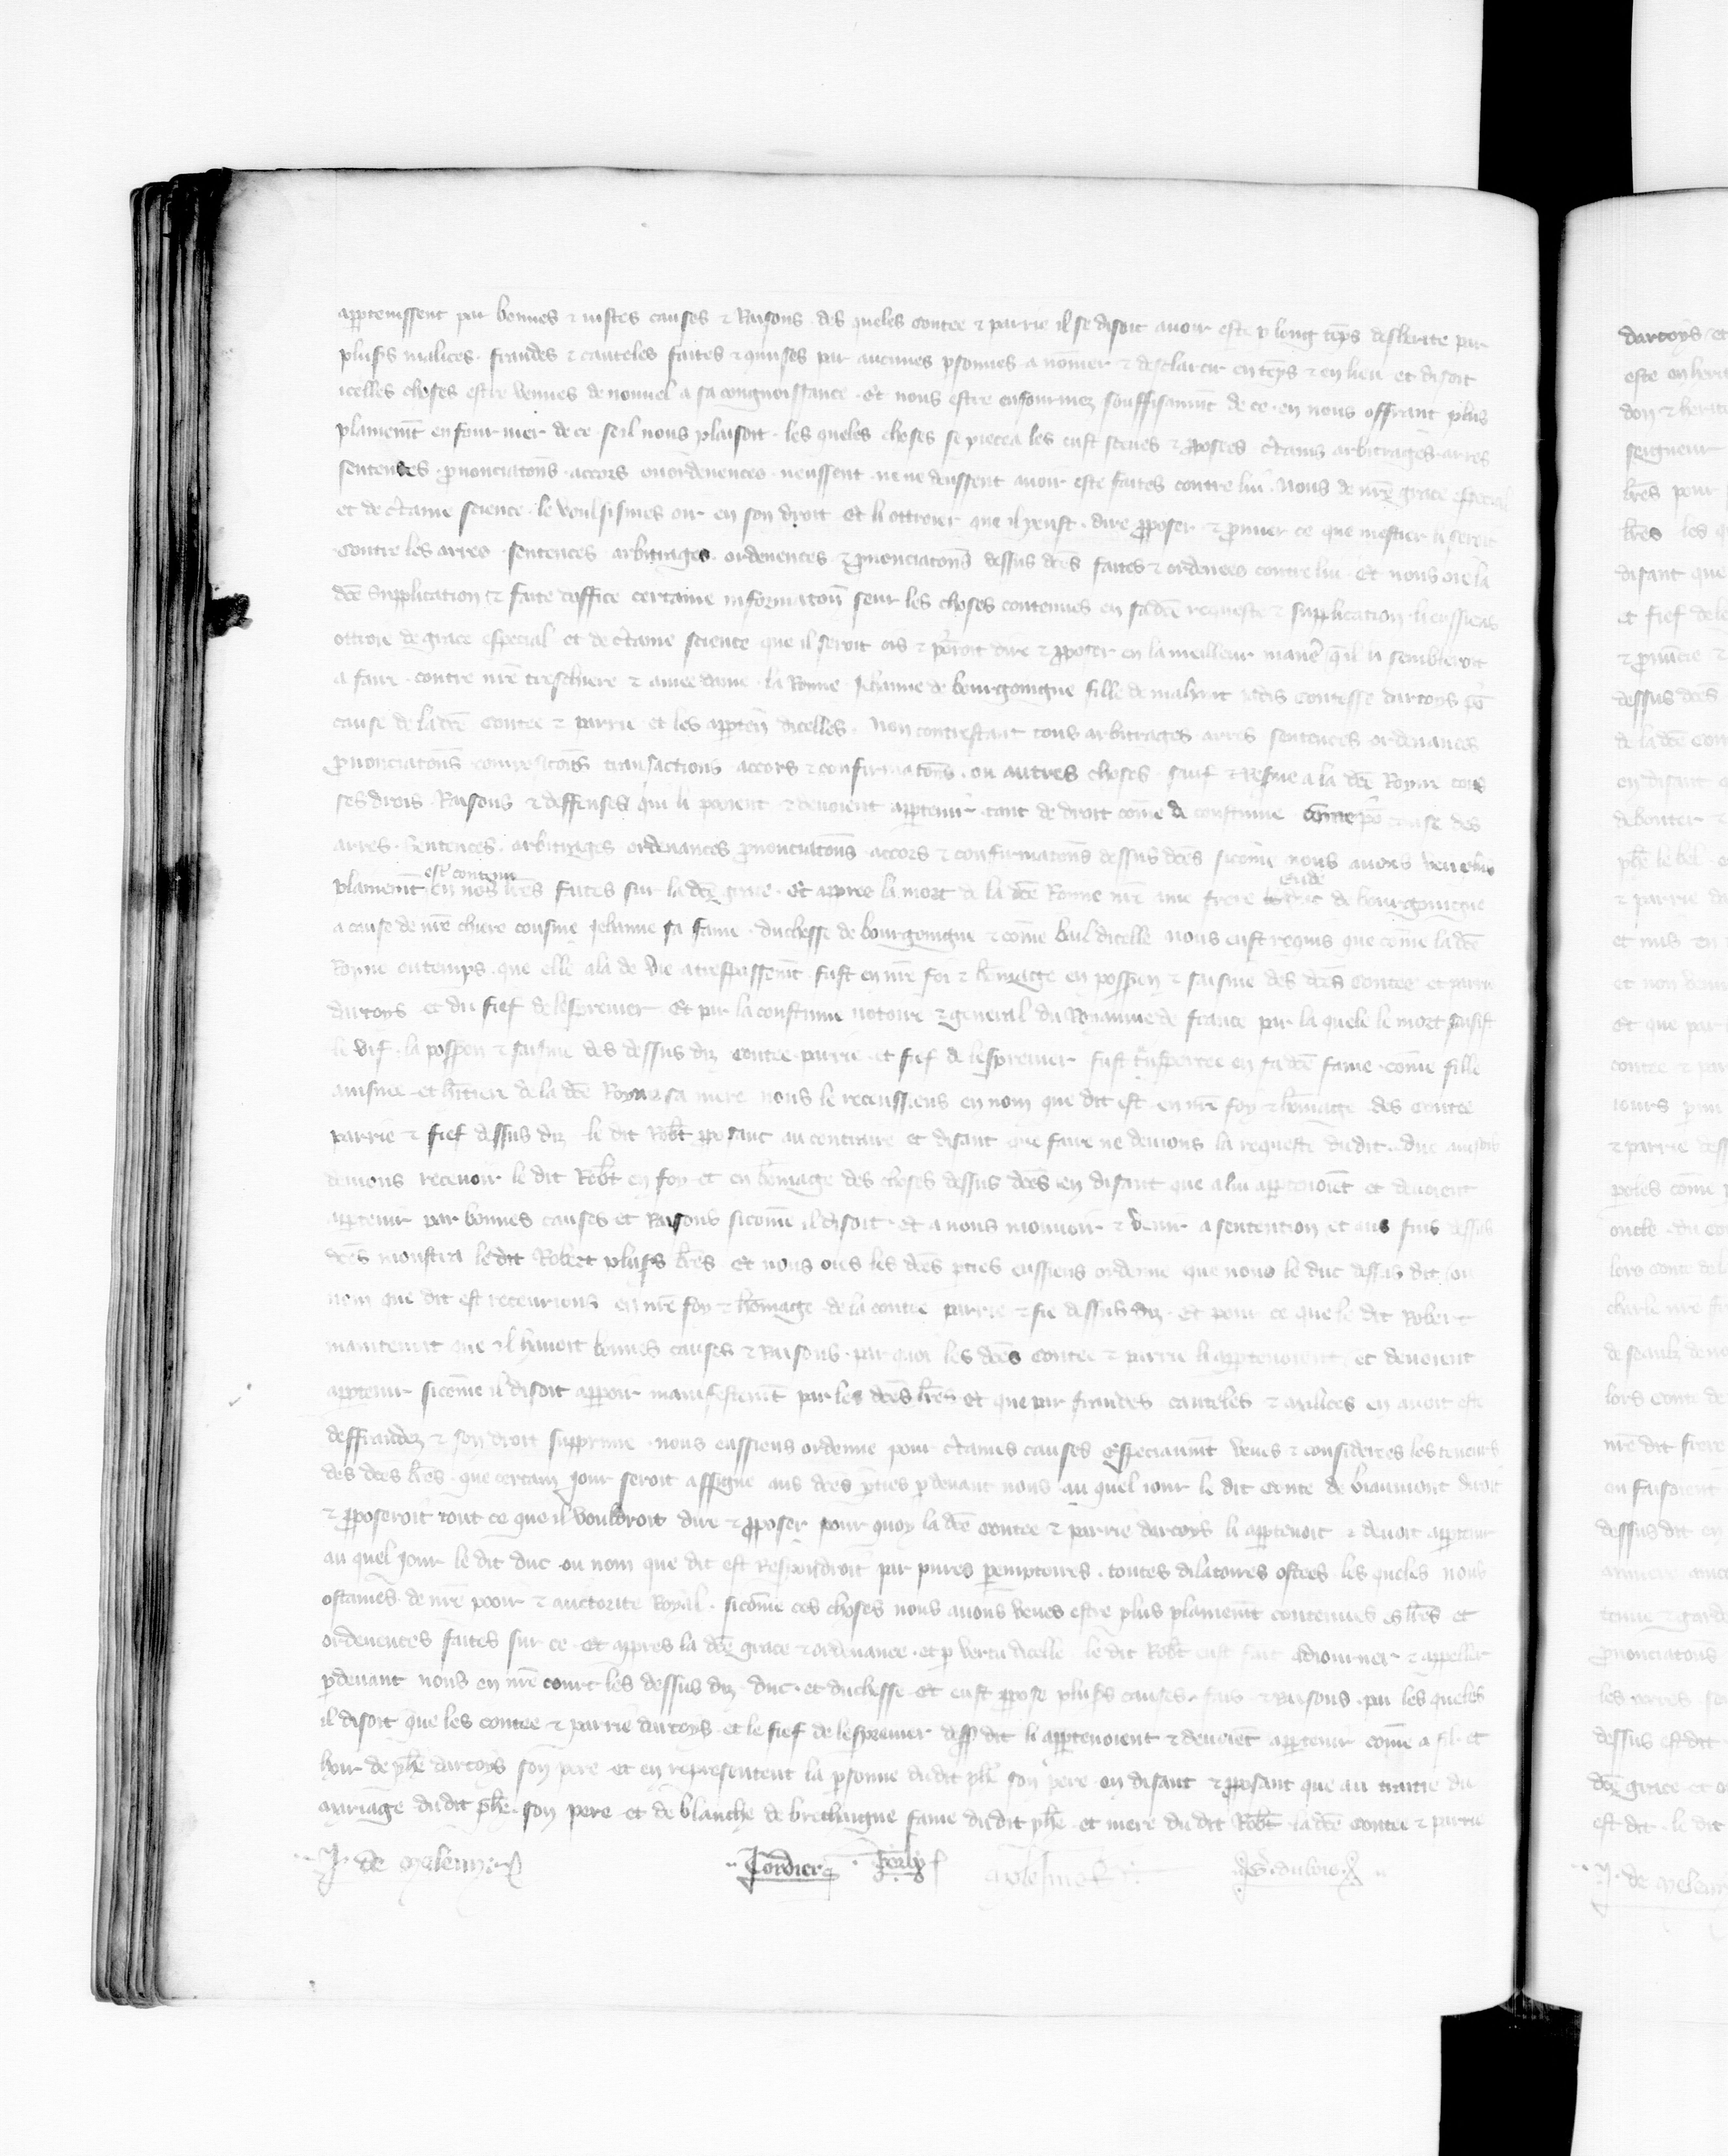 appartenissent par bonnes & iustes causes & Raisons des queles Contee & parrie il se disoit auoir este p long tēps desherite par
plusrs malices . fraudes & cauteles faites & quises par aucunes psonnes a nōmer & desclarcir en tēps & en lieu et disoit
icelles choses estre venues de nouuel a sa congnoissance . Et nous estre enfourmez souffisanmt de ce . en nous offrant plus
plainemt enfourmer de ce . seil nous plaisoit . les queles choses se pieca les eust sceues & pposees c̄tains arbitrages arres
sentences . pnonciatons . accors ou ordenences . neussent . ne ne deussent auoir este faites contre lui . Nous de nr̄e grace especial
et de c̄taine science . le voulsissiens oir en son droit Et li ottroier que il peust . dire pposer & prouuer ce que mestier li seroit
Contre les arres . sentences arbitrages ordenences & pnonciatons dessus dc̄es faites & ordenees contre lui . Et nous oie la
dc̄e Supplication & faite doffice certaine informaton seur les choses contenues en sa dc̄e requeste & supplication . li eussiens
ottroie de grace especial et de c̄taine science que il seroit ois & porroit dire & pposer en la meilleur manē qil li sembleroit
a faire . contre nr̄e treschiere & amee dame la Royne Jehanne de bourgoingne fille de mahaut iadis Contesse dartoys po
cause de la dc̄e Contee & parrie et les apparten dicelles . Non contrestant tous arbitrages arres sentences ordenances
pnonciatons transactions accors & confirmatons . ou autres choses sauf & Resue a la dc̄e Royne tous
ses drois . Raisons & deffenses qui li poeient & deuoient apartenir . tant de droit cōme de coustume cause des
arres . Sentences . arbitrages ordenances pnonciatons accors & confirmatons dessus dc̄es sicōme nous auons veu plus
plainemt est contenu en nos lr̄es faites sur la dc̄e grace . Et apprez la mort de la dc̄e Royne nr̄e ame frere Eude de bourgoingne
a cause de nr̄e chiere cousine Jehanne sa fame . duchesse de bourgoingne & cōme bail dicelle nous eust requis que cōme la dc̄e
Royne ou temps . que elle ala de vie a trespassemt fust en nr̄e foi & hōmage en possion & saisine des dc̄es Contee et parrie
dartoys et du fief de lespreuier Et par la coustume notoire & general du Royaume de france par la quele le mort saisist
le vif . la possion & saisine des dessus diz Contee . parrie . et fief de lespreuier fust tnsportee en sa dc̄e fame . cōme fille
ainsnee . et hitiere de la dc̄e Royne sa mere nous le receussiens en nom que dit est en nr̄e foy & hōmage des Contee
parrie & fief dessus diz le dit Robt pposant au contraire et disant que faire ne deuions la requeste dudit . duc
deuions receuoir le dit Robt en foy et en hōmage des choses dessus dc̄es en disant que a lui appartenoiēt et deuoient
appartenir par bonnes causes et Raisons sicōme il disoit . Et a nous mouuoir & venir a sentention et aus fins dessus
dc̄es monstra le dit Robert plusrs lr̄es . Et nous ois les dc̄es pties eussiens ordene que nous le duc dessus dit ou
nom que dit est receurions en nr̄e foy & hōmage de la contee parrie & fie dessus diz . Et pour ce que le dit Robert
maintenoit que il hauoit bonnes causes & Raisons . par quoi les dc̄es Contee & parrie li appartenoient et deuoient
appartenir sicōme il disoit apparoir manifestemt par les dc̄es lr̄es Et que par fraudes cauteles & malices en auoit este
deffraudez & son droit supprime . nous eussiens ordene pour c̄taines causes & especiaumt veues & considerees les teneurs
des dc̄es lr̄es . que certain Jour seroit assigne aus dc̄es pties pdeuant nous au quel iour le dit Conte de biaumont diroit
& pposeroit tout ce que il vouldroit dire & pposer pour quoy la dc̄e Contee & parrie dartoys li appartenoit & deuoit appartenir
au quel Jour le dit duc . ou nom que dit est Respondroit par pures pemptoires . toutes dilatoires ostees . les queles nous
ostames de nr̄e pooir & auctorite Royal . sicōme ces choses nous auons veues estre plus plainemt contenues es lr̄es et
ordenences faites sur ce . Et apres la dc̄e grace & ordenance . et p vertu dicelle le dit Robt eust fait adiourner & appeller
pdeuant nous en nr̄e court les dessus diz . duc . et duchesse Et eust ppose plusrs causes . fais & Raisons . par les queles
il disoit que les contee & parrie dartoys . et le fief de lespreuier dess dit li appartenoient & deuoiēt appartenir cōme a fil . et
hoir de phē dartoys son pere et en representent la psonne dudit phē son pere en disant & pposant que au traitie du
mariage dudit phē . son pere et de blanche de brethaigne fame dudit phē et mere du dit Robt la dc̄e Contee & parrie
J . de Meleun
Cordier